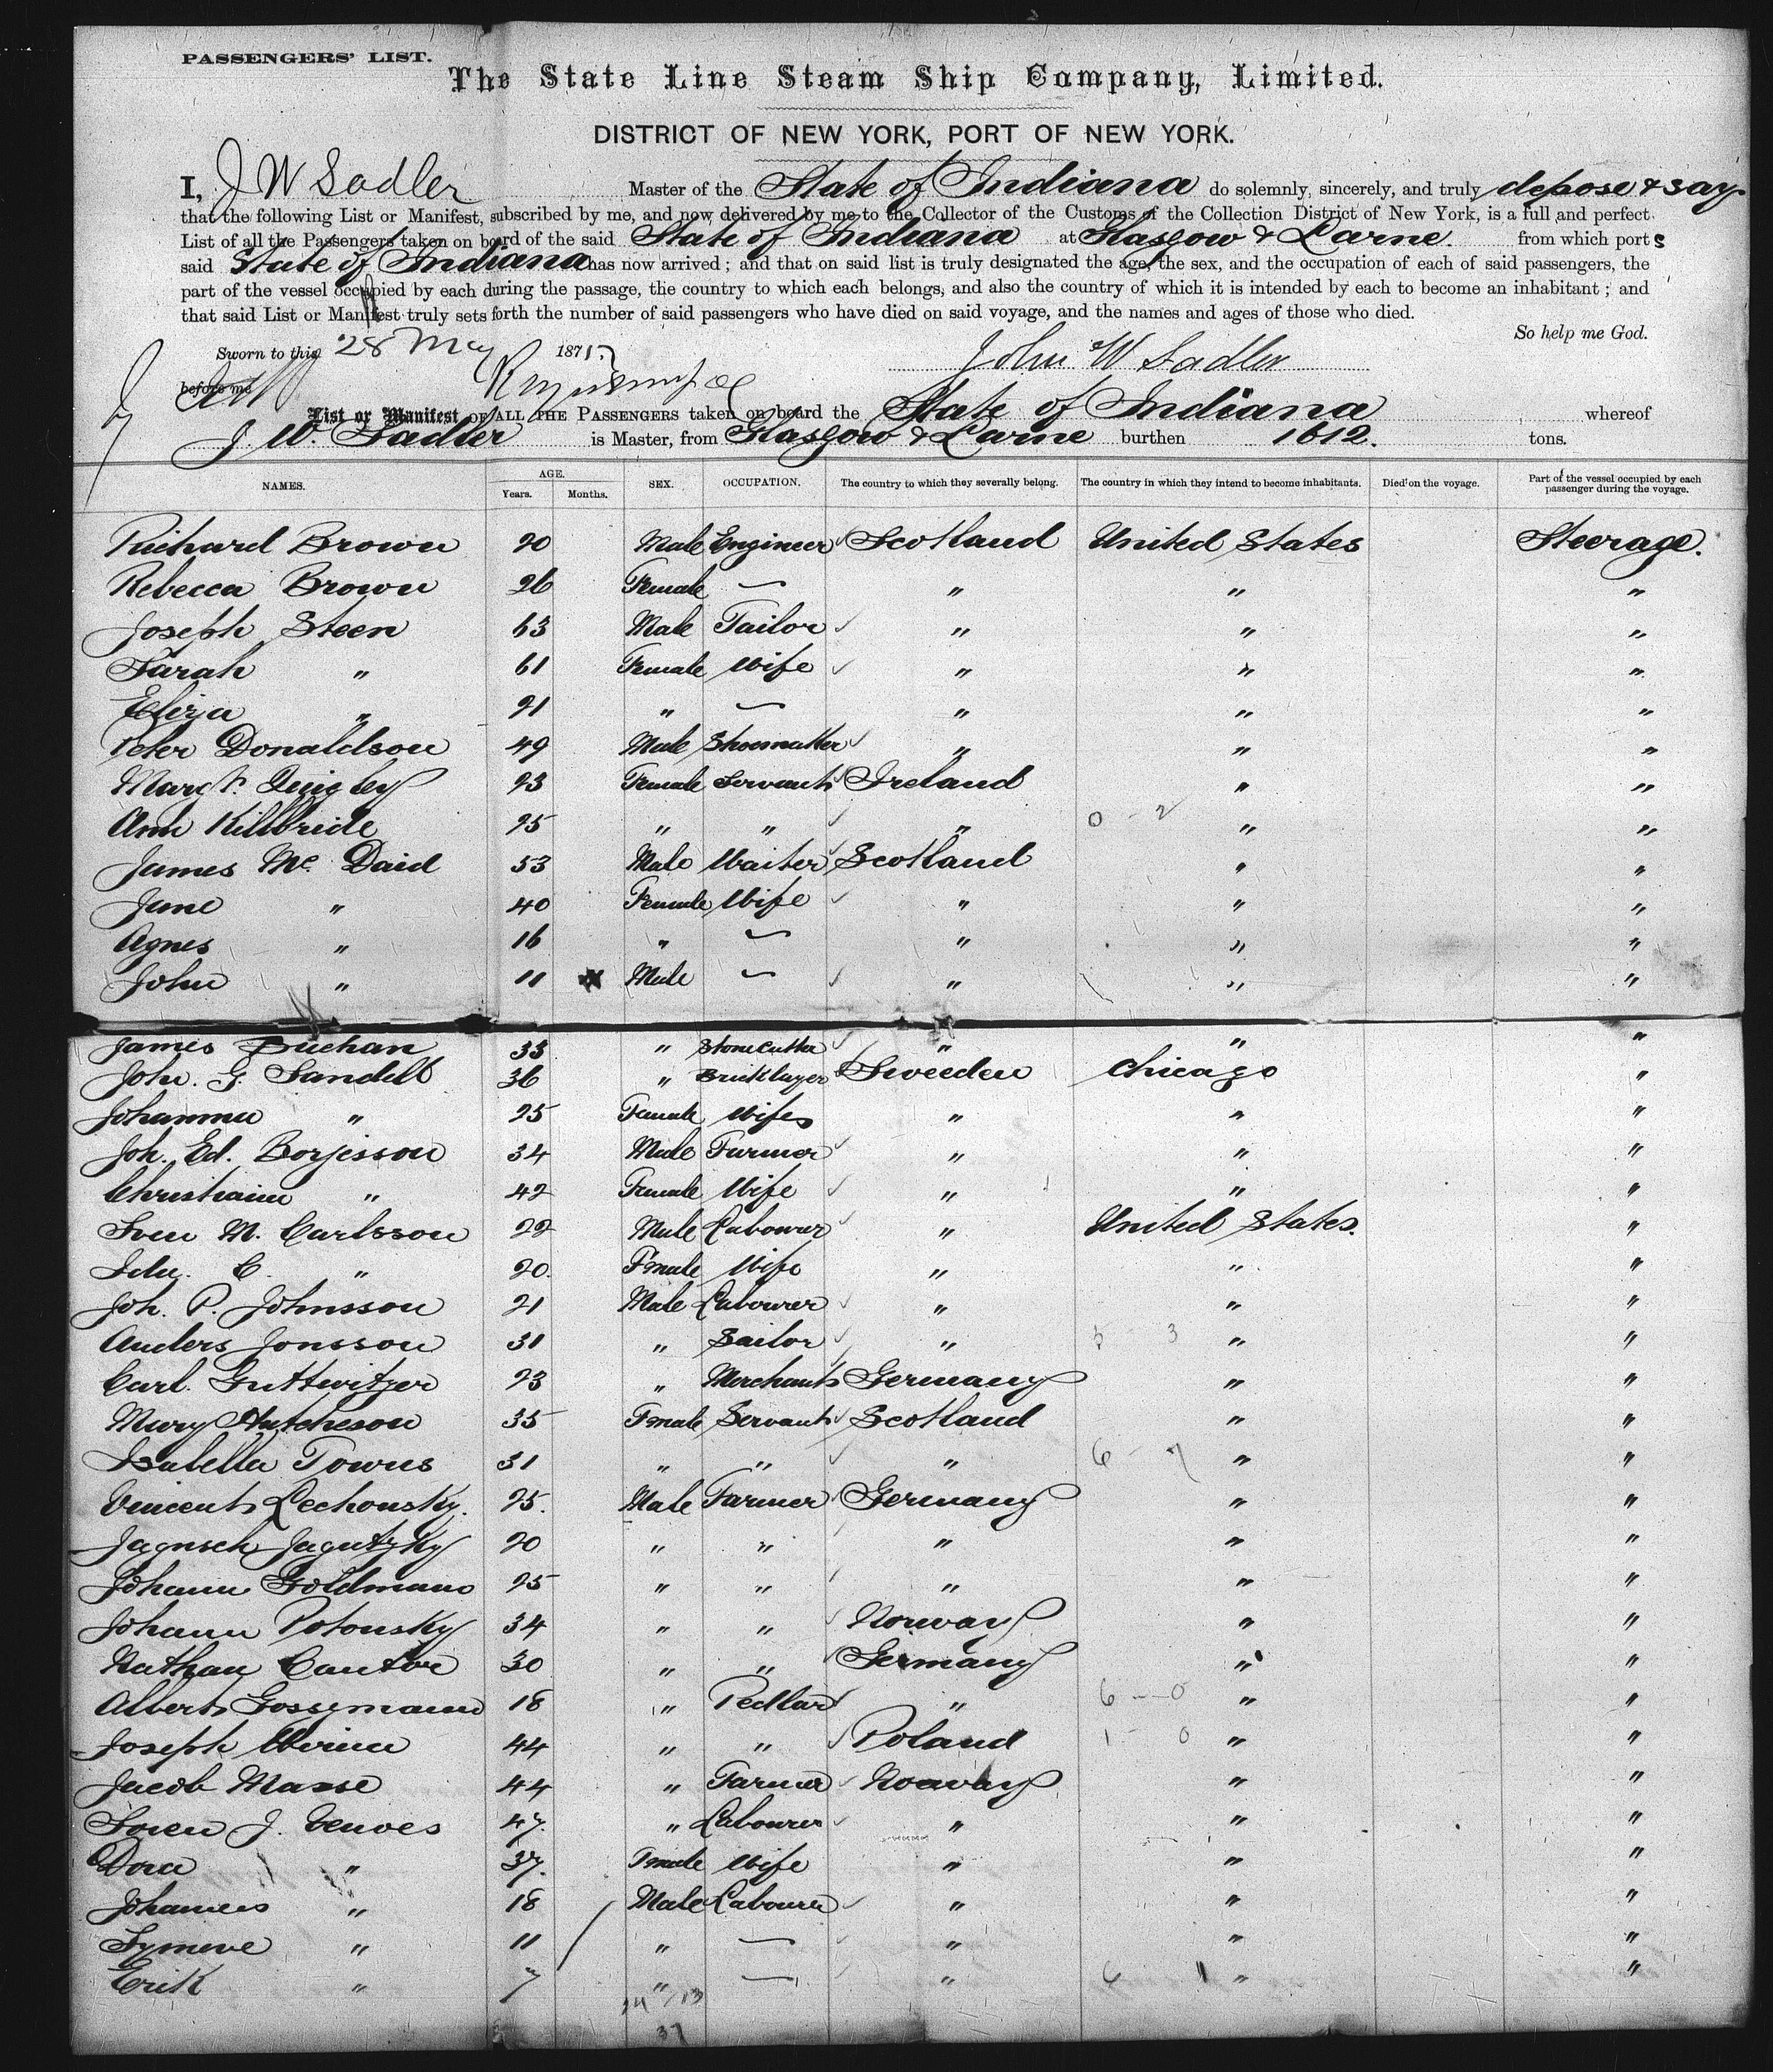 PASSENGERS' LIST.
The State Line Steam Ship Company, Limited.
DISTRICT OF NEW YORK, PORT OF NEW YORK.
I, J W Sadler Master of the State of Indiana do solemnly, sincerely, and truly depose & say
that the following List or Manifest, subscribed by me, and now delivered by me to the Collector of the Customs of the Collection District of New York, is a full and perfect
List of all the Passengers taken on board of the said State of Indiana at Glasgow & Larne. from which ports
said State of Indiana has now arrived; and that on said list is truly designated the age, the sex, and the occupation of each of said passengers, the
part of the vessel occupied by each during the passage, the country to which each belongs, and also the country of which it is intended by each to become an inhabitant; and
that said List or Manifest truly sets forth the number of said passengers who have died on said voyage, and the names and ages of those who died.
So help me God.
Sworn to this 28 May 187
John W Sadler
before me
List or Manifest OF ALL THE PASSENGERS taken on board the State of Indiana whereof
J. W. Sadler is Master, from Glasgow & Larne burthen 1612. tons.
NAMES. AGE. Years. Months. SEX. OCCUPATION. The country to which they severally belong. The country in which they intend to become inhabitants. Died on the voyage. Part of the vessel occupied by each passenger during the voyage.
Richard Brown 20 Male Engineer Scotland United States Steerage.
Rebecca Brown 26 Female — " " "
Joseph Steen 63 Male Tailor " " "
Sarah " 61 Female Wife " " "
Eliza " 21 " — " " "
Peter Donaldson 49 Male Shoemaker " " "
Margt. Quigley 23 Female Servant Ireland " "
Ann Killbride 25 " " " 0 - 2 " "
James Mc Daid 53 Male Waiter Scotland " "
Jane " 40 Female Wife " " "
Agnes " 16 " — " " "
John " 11 Male — " " "
James Buchan 33 " Stonecutter " " "
Joh. G. Sandell 36 " Bricklayer Sweeden Chicago "
Johanna " 25 Female Wife " " "
Joh. Ed. Borjesson 34 Male Farmer " " "
Christiaine " 42 Female Wife " " "
Sven M. Carlsson 22 Male Labourer " United States. "
Ida. C. " 20. Fmale Wife " " "
Joh. P. Johnsson 21 Male Labourer " " "
Anders Jonsson 31 " Sailor " 5 - 3 " "
Carl. Guttwitzer 23 " Merchant Germany " "
Mary Hutcheson 35 Fmale Servant Scotland " "
Isabella Towns 31 " " " 6 - 7 " "
Vincent Lechonsky. 25. Male Farmer Germany " "
Jagnsch Jagutzky 20 " " " " "
Johann Goldmann 25 " " " " "
Johann Potonsky 34 " " Norway " "
Nathan Cantor 30 " " Germany " "
Albert Gossymann 18 " Pedlar " 6 - 0 " "
Joseph 44 " " Poland 1 - 0 " "
Jacob Masse 44 " Farmer Norway " "
Soren J. 47. " Labourer " " "
Dora " 37. Fmale Wife " " "
Johannes " 18 Male Labourer " " "
Symeve " 11 " — " " "
Erik " 7 " — " 6 1 " "
24 / 13
37